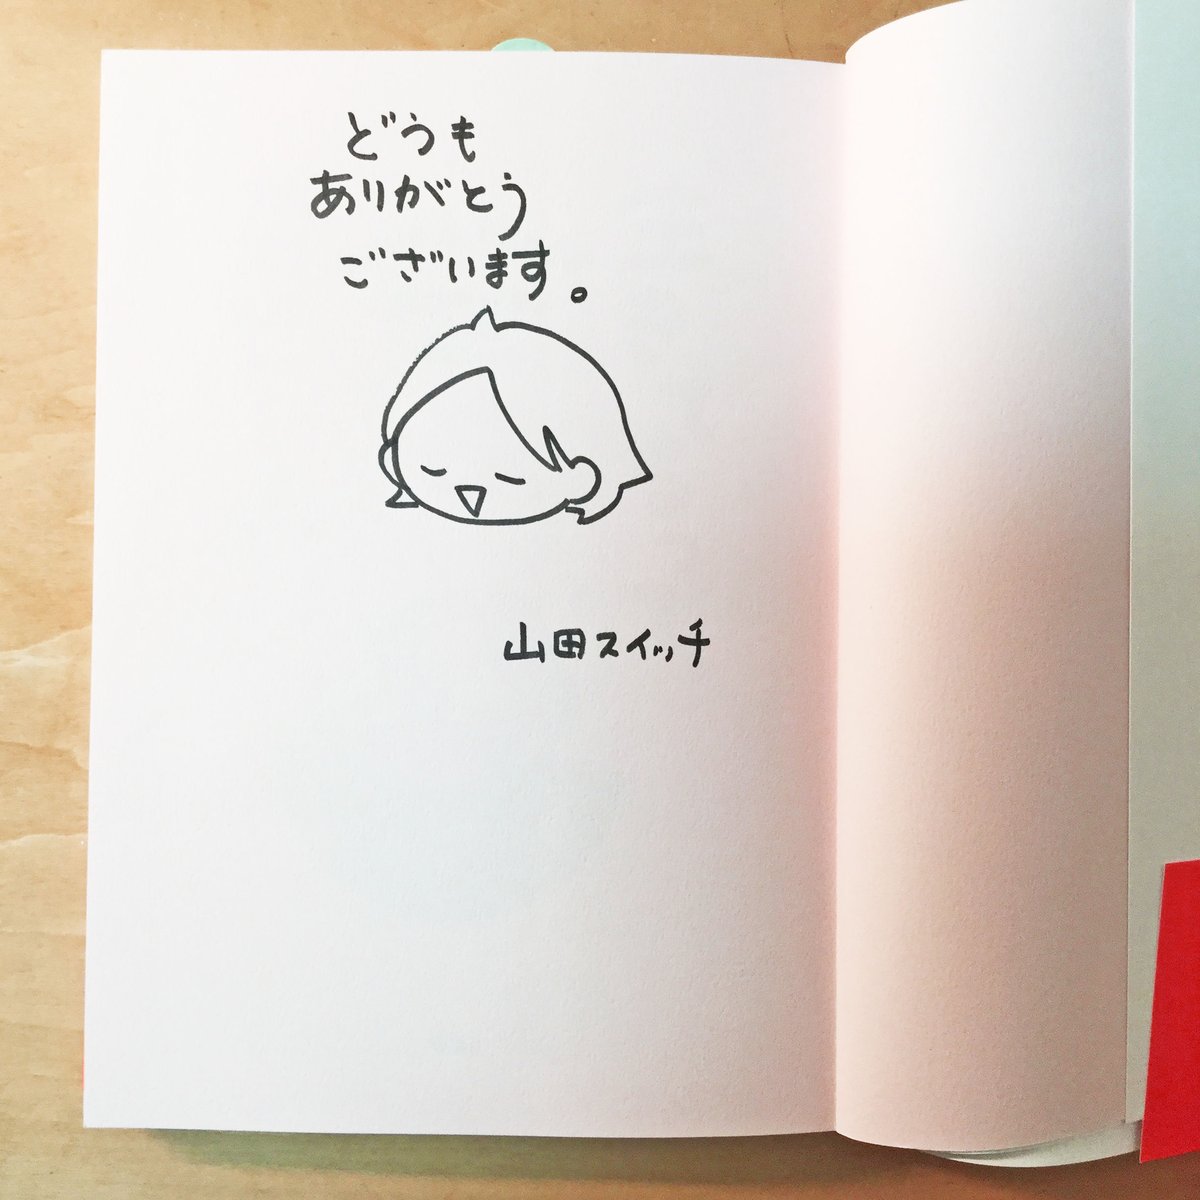 どうも
ありがとう
ございます。
山田スイッチ